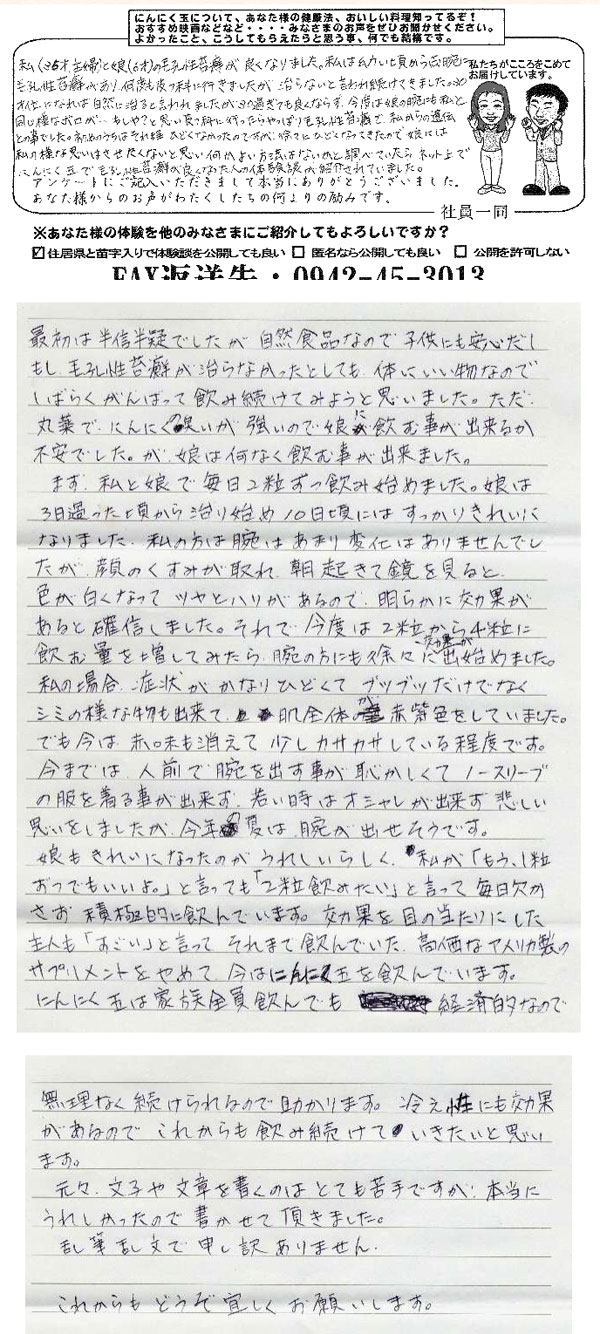 にんにく玉について、あなた様の健康法、おいしい料理知ってるぞ！
おすすめ映画などなど・・・・みなさまのお声をぜひお聞かせください。
よかったこと、こうしてもらえたらと思う事、何でも結構です。
私たちがこころをこめて
お届けしています。
私(36才主婦)と娘(6才)の毛孔性苔癬が良くなりました。私は幼い頃から両腕に
毛孔性苔癬があり、何度も皮フ科に行きましたが治らないと言われ続けてきました。20
才位になれば自然に治ると言われましたが30過ぎても良くならず、今度は娘の腕にも私と
同じ様なボツボツが…もしやと思い皮フ科に行ったらやっぱり毛孔性苔癬で、私からの遺伝
との事でした。初めのうちはそれ程ひどくなかったのですが、徐々にひどくなってきたので娘には
私の様な思いはさせたくないと思い何かよい方法はないかと調べていたらネット上で
にんにく玉で毛孔性苔癬が良くなった人の体験談が紹介されていました。
アンケートにご記入いただきまして本当にありがとうございました。
あなた様からのお声がわたくしたちの何よりの励みです。
社員一同
※あなた様の体験を他のみなさまにご紹介してもよろしいですか？
☑住居県と苗字入りで体験談を公開しても良い □ 匿名なら公開しても良い □ 公開を許可しない
FAX返送先・0942-45-3013
最初は半信半疑でしたが 自然食品なので子供にも安心だし
もし、毛孔性苔癬が治らなかったとしても、体にいい物なので
しばらくがんばって飲み続けてみようと思いました。ただ、
丸薬で、にんにくの臭いが強いので娘に飲む事が出来るか
不安でした。が、娘は何なく飲む事が出来ました。
まず、私と娘で毎日2粒ずつ飲み始めました。娘は
3日過った頃から治り始め10日頃にはすっかりきれいに
なりました。私の方は腕はあまり変化はありませんでし
たが、顔のくすみが取れ、朝起きて鏡を見ると、
色が白くなってツヤとハリがあるので、明らかに効果が
あると確信しました。それで、今度は2粒から4粒に
飲む量を増してみたら、腕の方にも徐々に効果が出始めました。
私の場合、症状がかなりひどくて ブツブツだけでなく
シミの様な物も出来て、肌全体が赤紫色をしていました。
でも今は、赤味も消えて少しカサカサしている程度です。
今までは、人前で腕を出す事が恥かしくてノースリーブ
の服を着る事が出来ず、若い時はオシャレが出来ず悲しい
思いをしましたが、今年の夏は、腕が出せそうです。
娘もきれいになったのがうれしいらしく、私が「もう、1粒
ずつでもいいよ。」と言っても「2粒飲みたい」と言って毎日欠か
さず 積極的に飲んでいます。効果を目の当たりにした
主人も「すごい」と言って それまで飲んでいた、高価なアメリカ製の
サプリメントをやめて 今はにんにく玉を飲んでいます。
にんにく玉は家族全員飲んでも 経済的なので
無理なく続けられるので助かります。冷え性にも効果
があるので これからも飲み続けていきたいと思い
ます。
元々、文字や文章を書くのはとても苦手ですが、本当に
うれしかったので書かせて頂きました。
乱筆乱文で申し訳ありません。
これからもどうぞ宜しくお願いします。